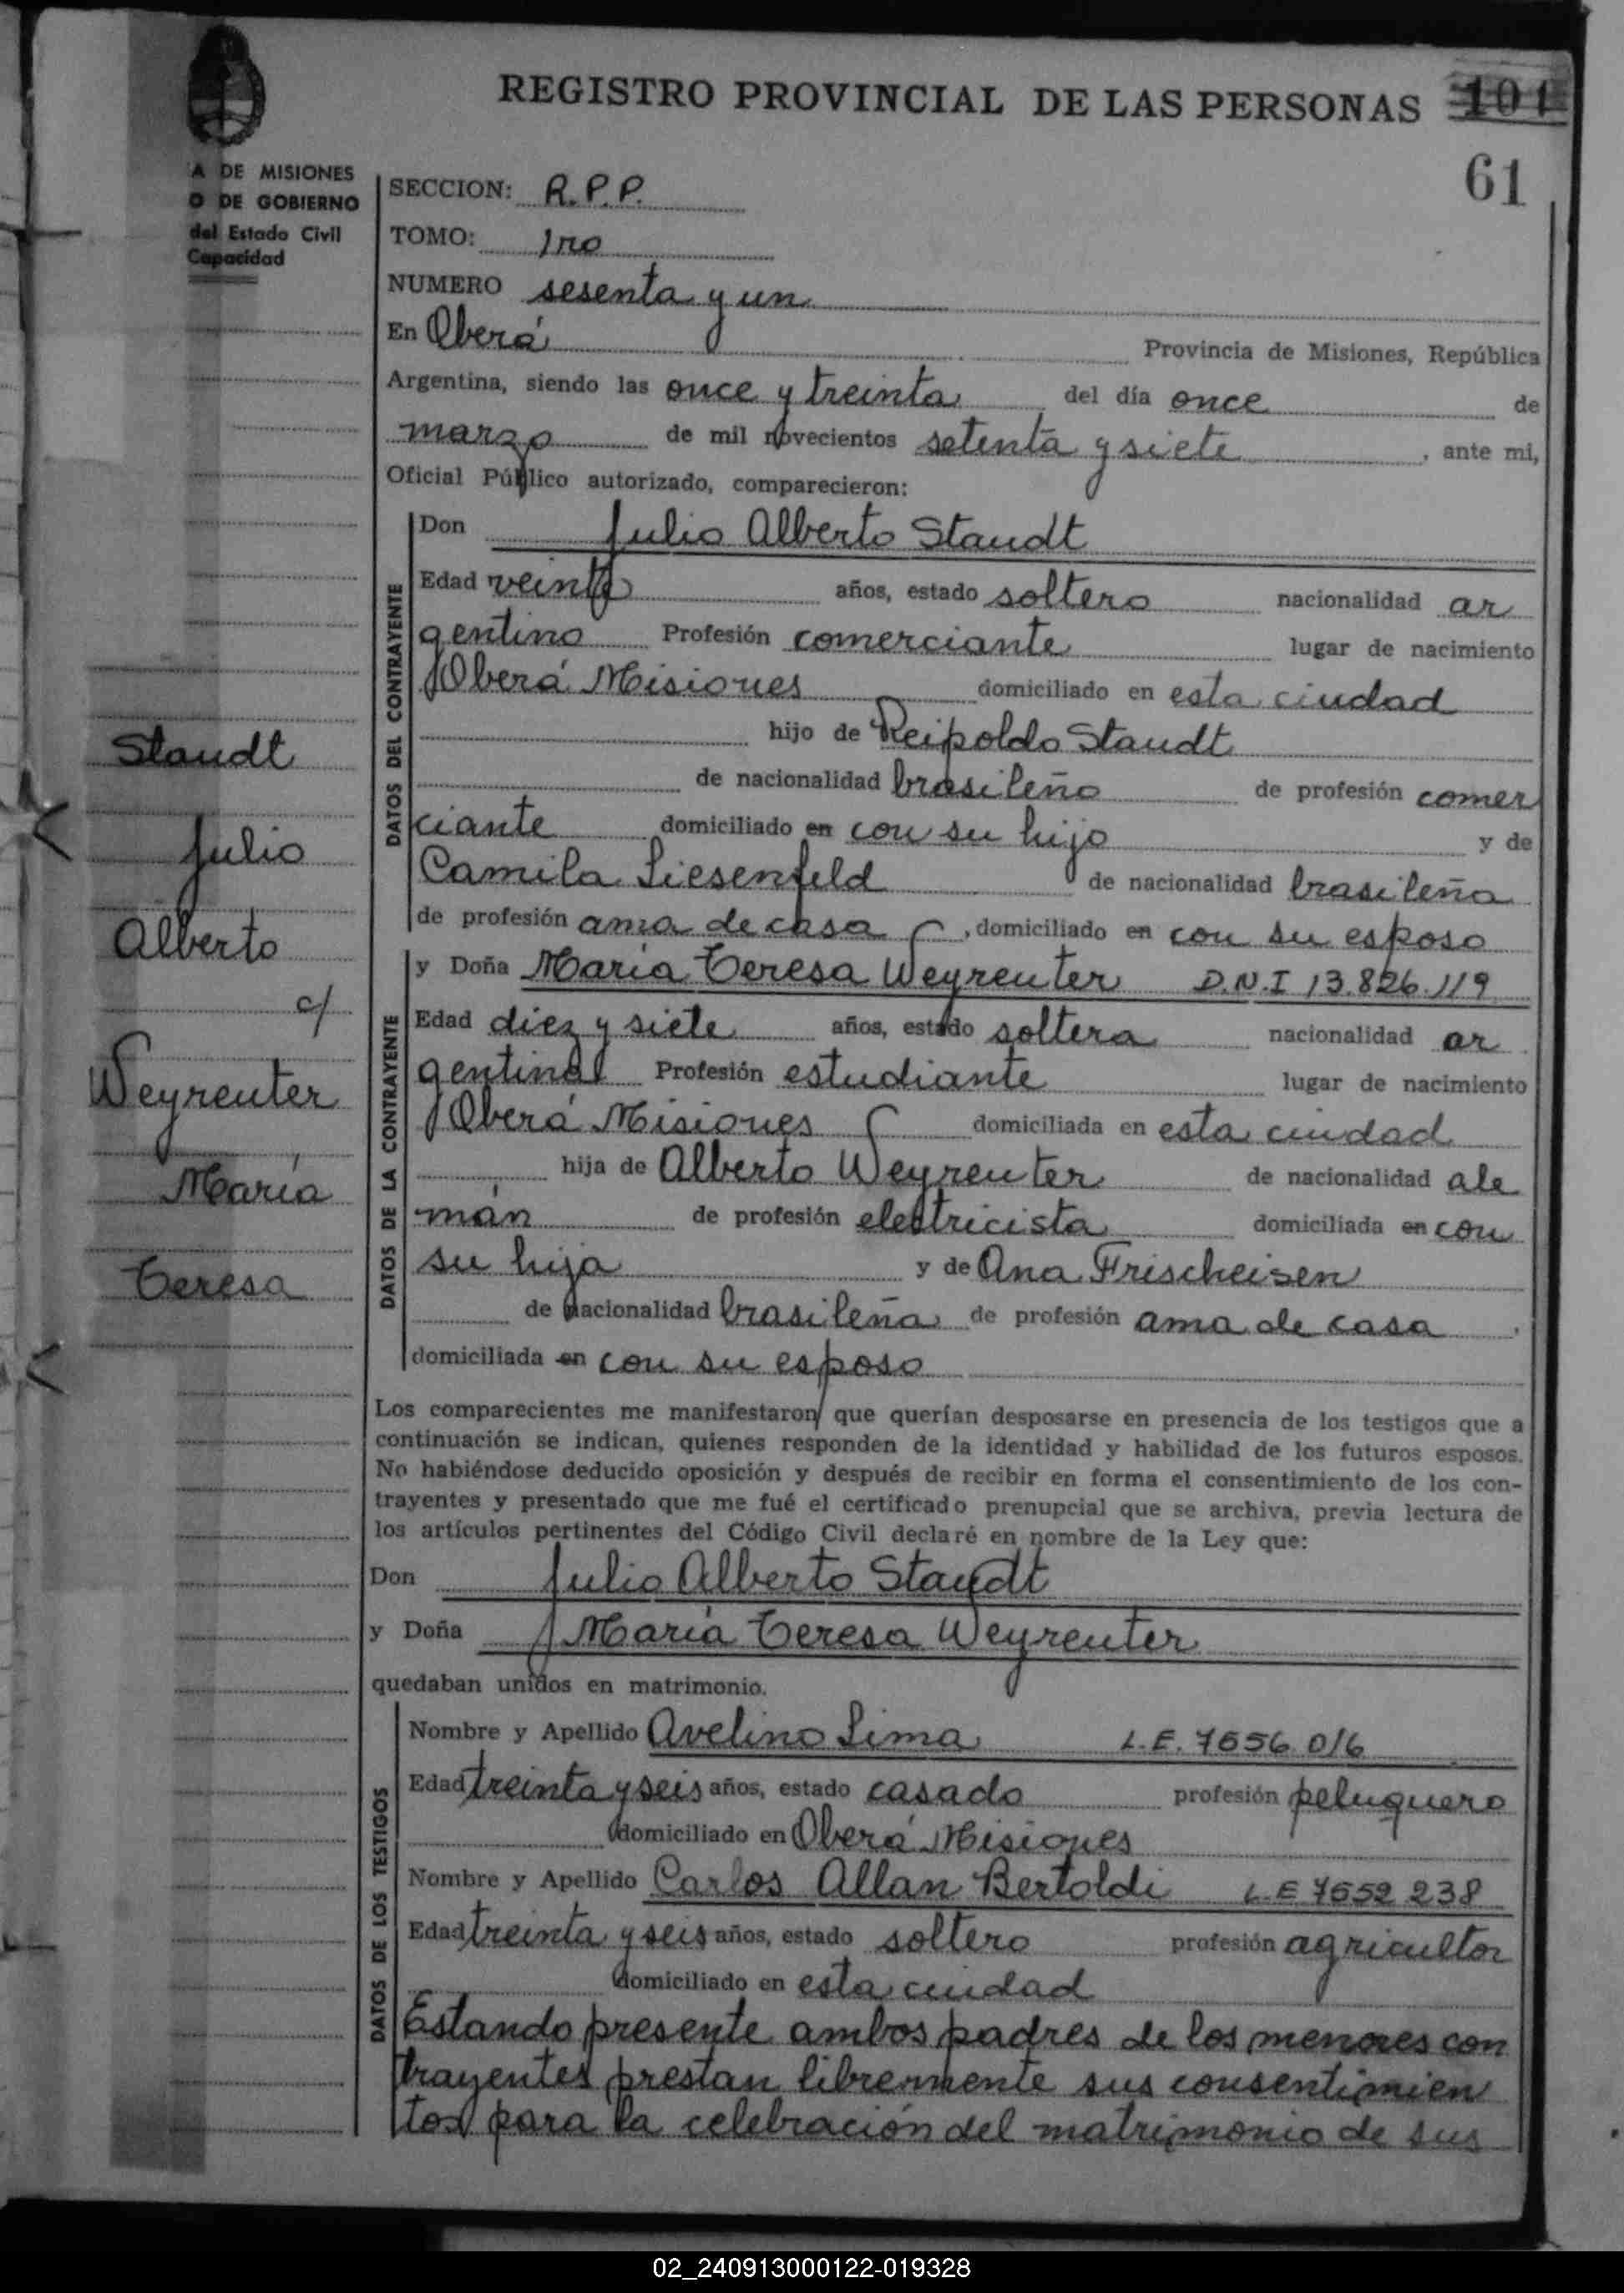 REGISTRO PROVINCIAL DE LAS PERSONAS 101
61
A DE MISIONES
O DE GOBIERNO
del Estado Civil
Capacidad
SECCION: R.P.P.
TOMO: 1ro
NUMERO sesenta y un
En Oberá Provincia de Misiones, República
Argentina, siendo las once y treinta del día once de
marzo de mil novecientos setenta y siete, ante mi,
Oficial Público autorizado, comparecieron:
DATOS DEL CONTRAYENTE
Don Julio Alberto Staudt
Edad veinte años, estado soltero nacionalidad ar
gentino Profesión comerciante lugar de nacimiento
Oberá Misiones domiciliado en esta ciudad
hijo de Reipoldo Staudt
de nacionalidad brasileño de profesión comer
ciante domiciliado en con su hijo y de
Camila Liesenfeld de nacionalidad brasileña
de profesión ama de casa, domiciliado en con su esposo
DATOS DE LA CONTRAYENTE
y Doña María Teresa Weyreuter D.N.I 13.826.119
Edad diez y siete años, estado soltera nacionalidad ar
gentina Profesión estudiante lugar de nacimiento
Oberá Misiones domiciliada en esta ciudad
hija de Alberto Weyreuter de nacionalidad ale
mán de profesión electricista domiciliada en con
su hija y de Ana Frischeisen
de nacionalidad brasileña de profesión ama de casa,
domiciliada en con su esposo
Staudt
Julio
Alberto
c/
Weyreuter
María
Teresa
Los comparecientes me manifestaron que querían desposarse en presencia de los testigos que a
continuación se indican, quienes responden de la identidad y habilidad de los futuros esposos.
No habiéndose deducido oposición y después de recibir en forma el consentimiento de los con-
trayentes y presentado que me fué el certificado prenupcial que se archiva, previa lectura de
los artículos pertinentes del Código Civil declaré en nombre de la Ley que:
Don Julio Alberto Staudt
y Doña María Teresa Weyreuter
quedaban unidos en matrimonio.
DATOS DE LOS TESTIGOS
Nombre y Apellido Avelino Lima L.E. 7656 016
Edad treinta y seis años, estado casado profesión peluquero
domiciliado en Oberá Misiones
Nombre y Apellido Carlos Allan Bertoldi L.E 7652 238
Edad treinta y seis años, estado soltero profesión agricultor
domiciliado en esta ciudad
Estando presente ambos padres de los menores con
trayentes prestan libremente sus consentimien
tos para la celebración del matrimonio de sus
02_240913000122-019328